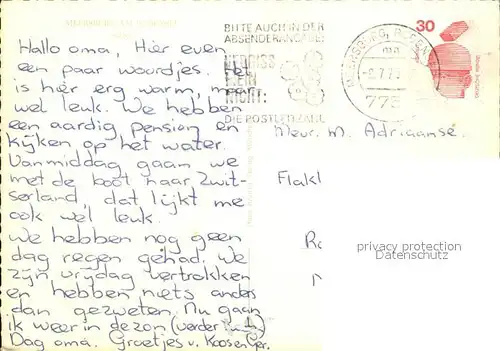 Hallo oma, Hier even
een paar woordjes. Het
is hier erg warm, maar
wel leuk. We hebben
een aardig pension en
kijken op het water.
Vanmiddag gaan we
met de boot naar Zwit-
serland, dat lijkt me
ook wel leuk.
We hebben nog geen
dag regen gehad. We
zijn vrijdag vertrokken
en hebben niets anders
dan gezweten. Nu gaan
ik weer in de zon (verder
Dag oma. Groetjes v. Koos en Ger.
BITTE AUCH IN DER
ABSENDERANGABE:
VERGISS
MEIN
NICHT:
DIE POSTLEITZAHL
MEERSBURG, BODENSEE
775
30
Mevr. M. Adriaanse.
Flakk
privacy protection
Datenschutz